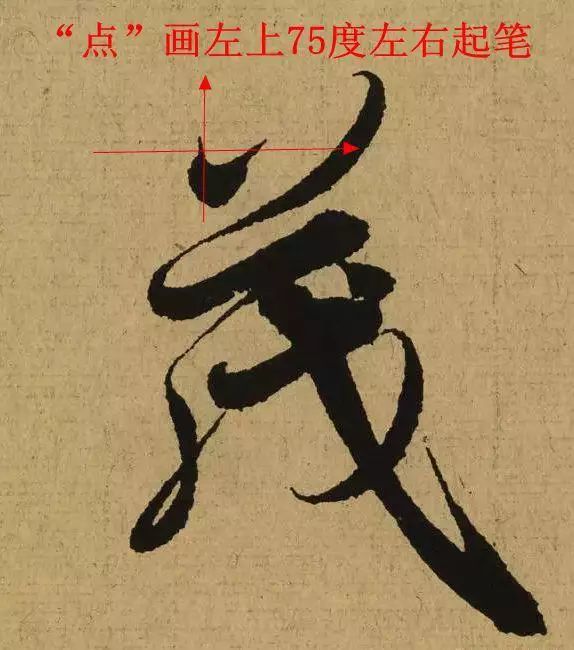 “点”画左上75度左右起笔